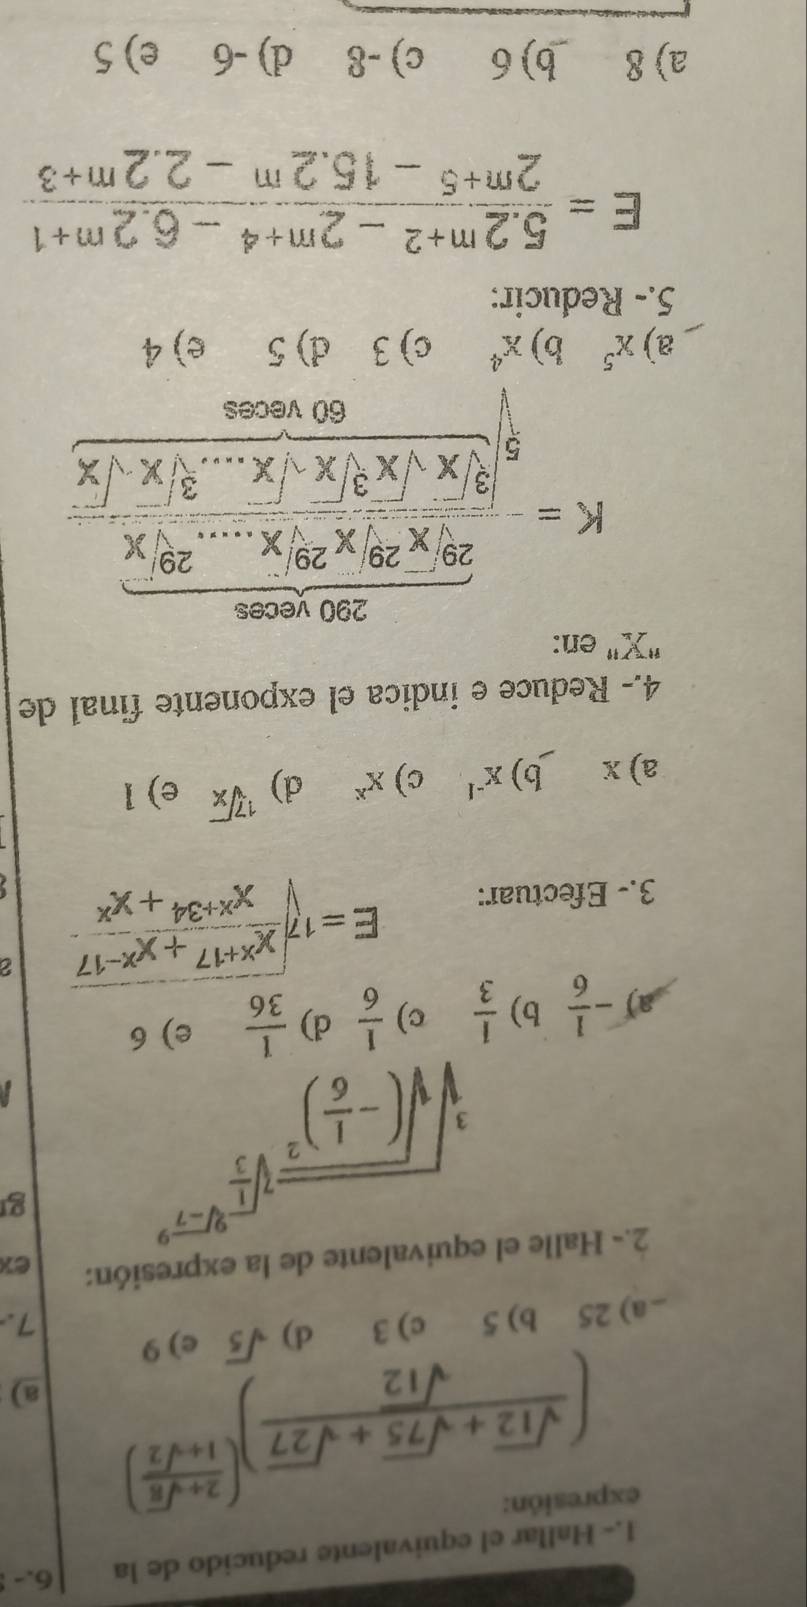 1.- Hallar el equivalente reducido de la
expresión:
((√12 + √75 + √27)/√12)^((2+√8)/(1+√2))
a) 25 b) 5 c) 3 d) √5 e) 9
2.- Halle el equivalente de la expresión:
a) -1/6 b) 1/3 c) 1/6 d) 1/36 e) 6
3.- Efectuar: E = ¹⁷√((x^(x+17) + x^(x-17))/(x^(x+34) + x^x))
a) x b) x⁻¹ c) xˣ d) ¹⁷√x e) 1
4.- Reduce e indica el exponente final de
"X" en:
290 veces
K = (²⁹√x ²⁹√x ²⁹√x ...... ²⁹√x)/(⁵√(³√x √x ³√x √x .... ³√x √x))
60 veces
a) x⁵ b) x⁴ c) 3 d) 5 e) 4
5.- Reducir:
E = (5.2^(m+2) - 2^(m+4) - 6.2^(m+1))/(2^(m+5) - 15.2^m - 2.2^(m+3))
a) 8 b) 6 c) -8 d) -6 e) 5
6.-
a)
7.-
ex
gr